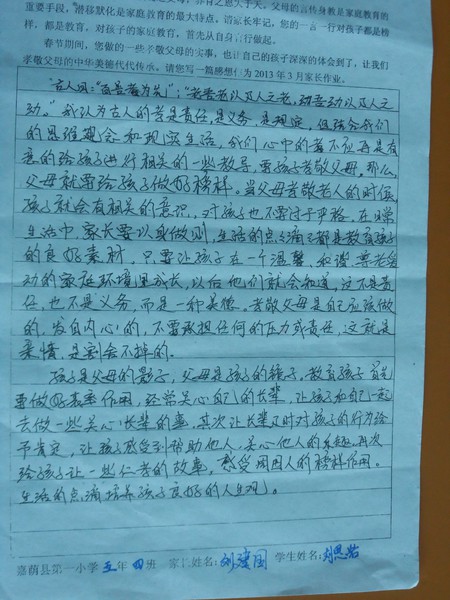 重要手段，潜移默化是家庭教育的最大特点，请家长牢记，您的一言一行对孩子都是榜
样，都是教育，对孩子的家庭教育，首先从自身言行做起。
春节期间，您做的一些孝敬父母的实事，也让自己的孩子深深的体会到了，让我们
孝敬父母的中华美德代代传承。请您写一篇感想作为 2013 年 3 月家长作业。
古人曰："百善孝为先"；"老吾老以及人之老，幼吾幼以及人之
幼。"我认为古人的孝是责任，是义务，是规定，但结合我们
的思维观念和现实生活，我们心中的孝不应再是有
意的给孩子进行相关的一些教导，要孩子孝敬父母。那么，
父母就要给孩子做好榜样。当父母孝敬老人的时候，
孩子就会有相关的意识，对孩子也不要过于严格，在日常
生活中家长要以身做则，生活的点点滴滴都是教育孩子
的良好素材，只要让孩子在一个温馨，和谐，尊老爱
幼的家庭环境里成长，以后他们就会知道，这不是责
任，也不是义务，而是一种美德。孝敬父母是自己应该做
的，发自内心的，不需承担任何的压力或责任，这就是
亲情，是割舍不掉的。
孩子是父母的影子，父母是孩子的镜子。教育孩子首先
要做好表率作用，经常关心自己的长辈，让孩子和自己一起
去做一些关心长辈的事，其次让长辈及时对孩子的行为给
予肯定，让孩子感受到帮助他人，关心他人的乐趣。再次
给孩子讲一些仁孝的故事，感受周围人的榜样作用。
生活的点滴培养孩子良好的人生观。
嘉荫县第一小学 五 年 四 班 家长姓名：刘建国 学生姓名：刘思